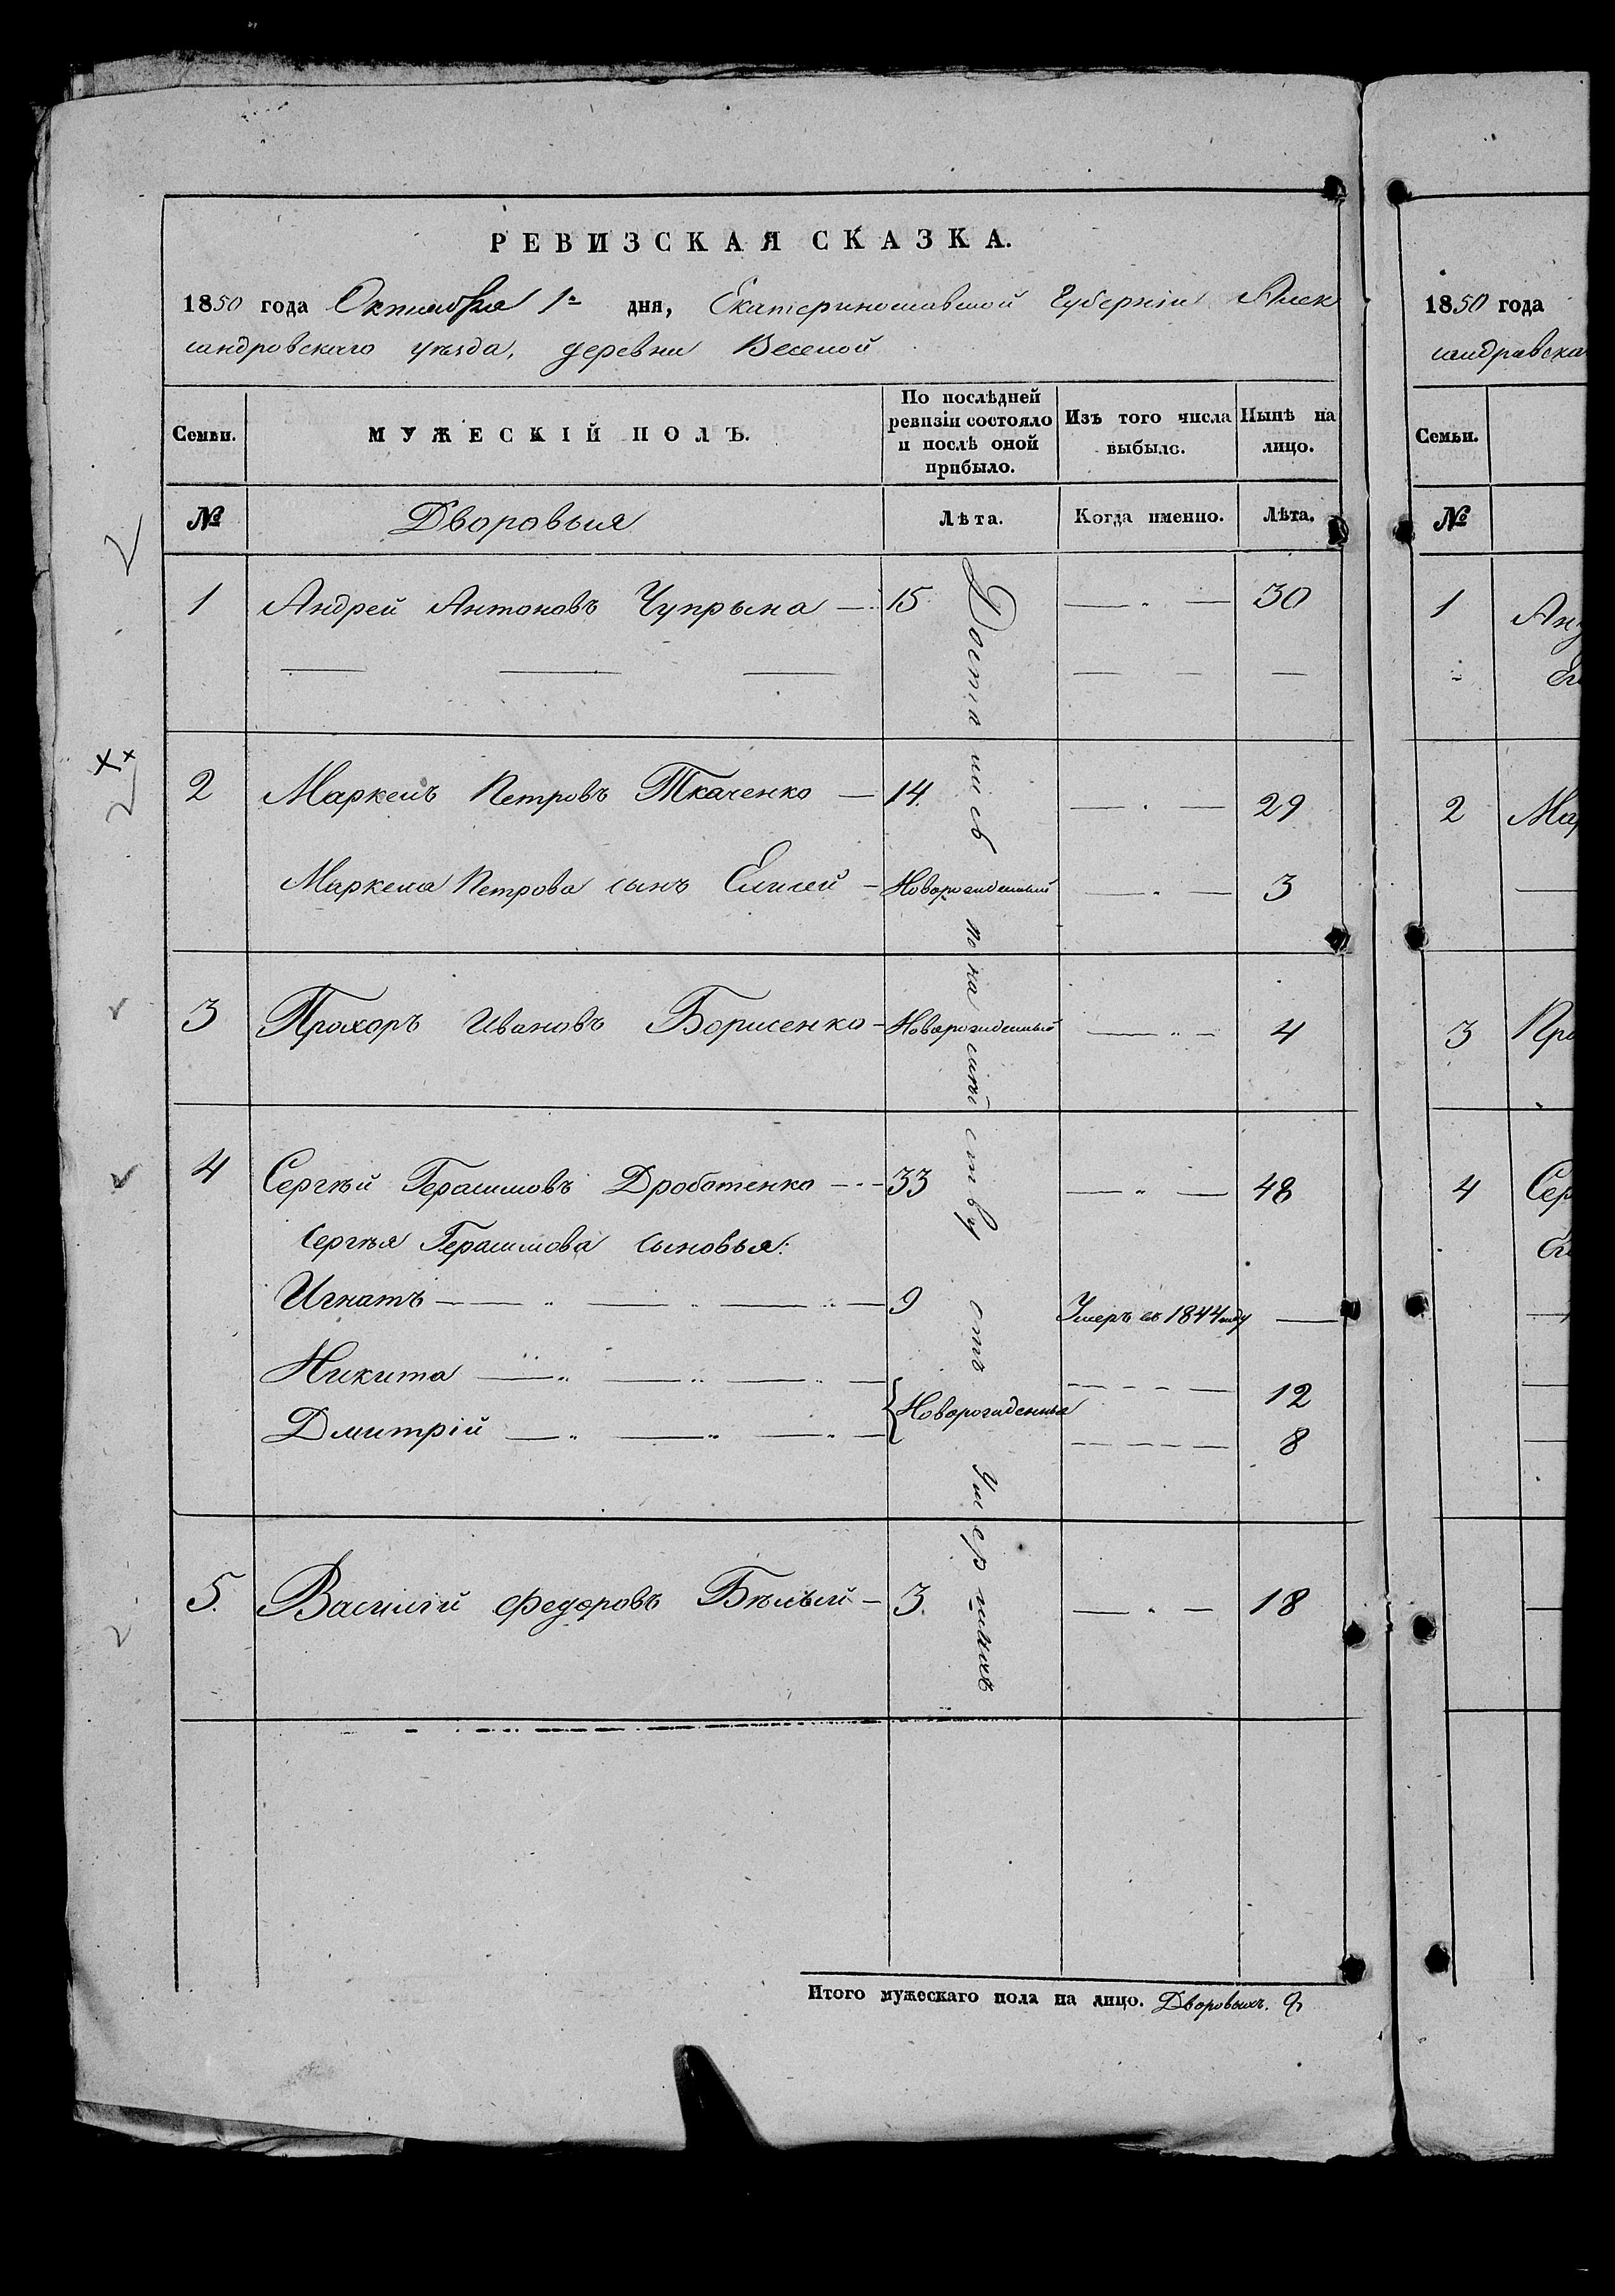 РЕВИЗСКАЯ СКАЗКА.
1850 года Октября 1го дня, Екатериношавшой Губерніи Алек
сандровскаго уѣзда, деревни Веселой
Семьи. МУЖЕСКІЙ ПОЛЪ. По послѣдней ревизіи состояло и послѣ оной прибыло. Изъ того числа выбыло. Нынѣ на лицо.
№ Дворовыя Лѣта. Когда именно. Лѣта.
1 Андрей Антоновъ Чупрына — 15 — " — 30
2 Маркелъ Петровъ Ткаченко — 14. — " — 29
Маркела Петрова сынъ Елисей — Новорожденный — " — 3
3 Прохоръ Ивановъ Борисенко — Новорожденный — " — 4
4 Сергѣй Герасимовъ Дроботенко — 33 — " — 48
Сергѣя Герасимова сыновья:
Игнатъ — " — " — " — 9 Умеръ въ 1844 году —
Никита — " — " — " — 12
{Новорожденныя
Дмитрій — " — " — " — 8
5. Василій Федоровъ Бѣлый — 3. — " — 18
Достались по наслѣдству отъ умершихъ
Итого мужескаго пола на лицо. Дворовыхъ. 8
1850 года
сандровска
Семьи.
№
1
2
3
4